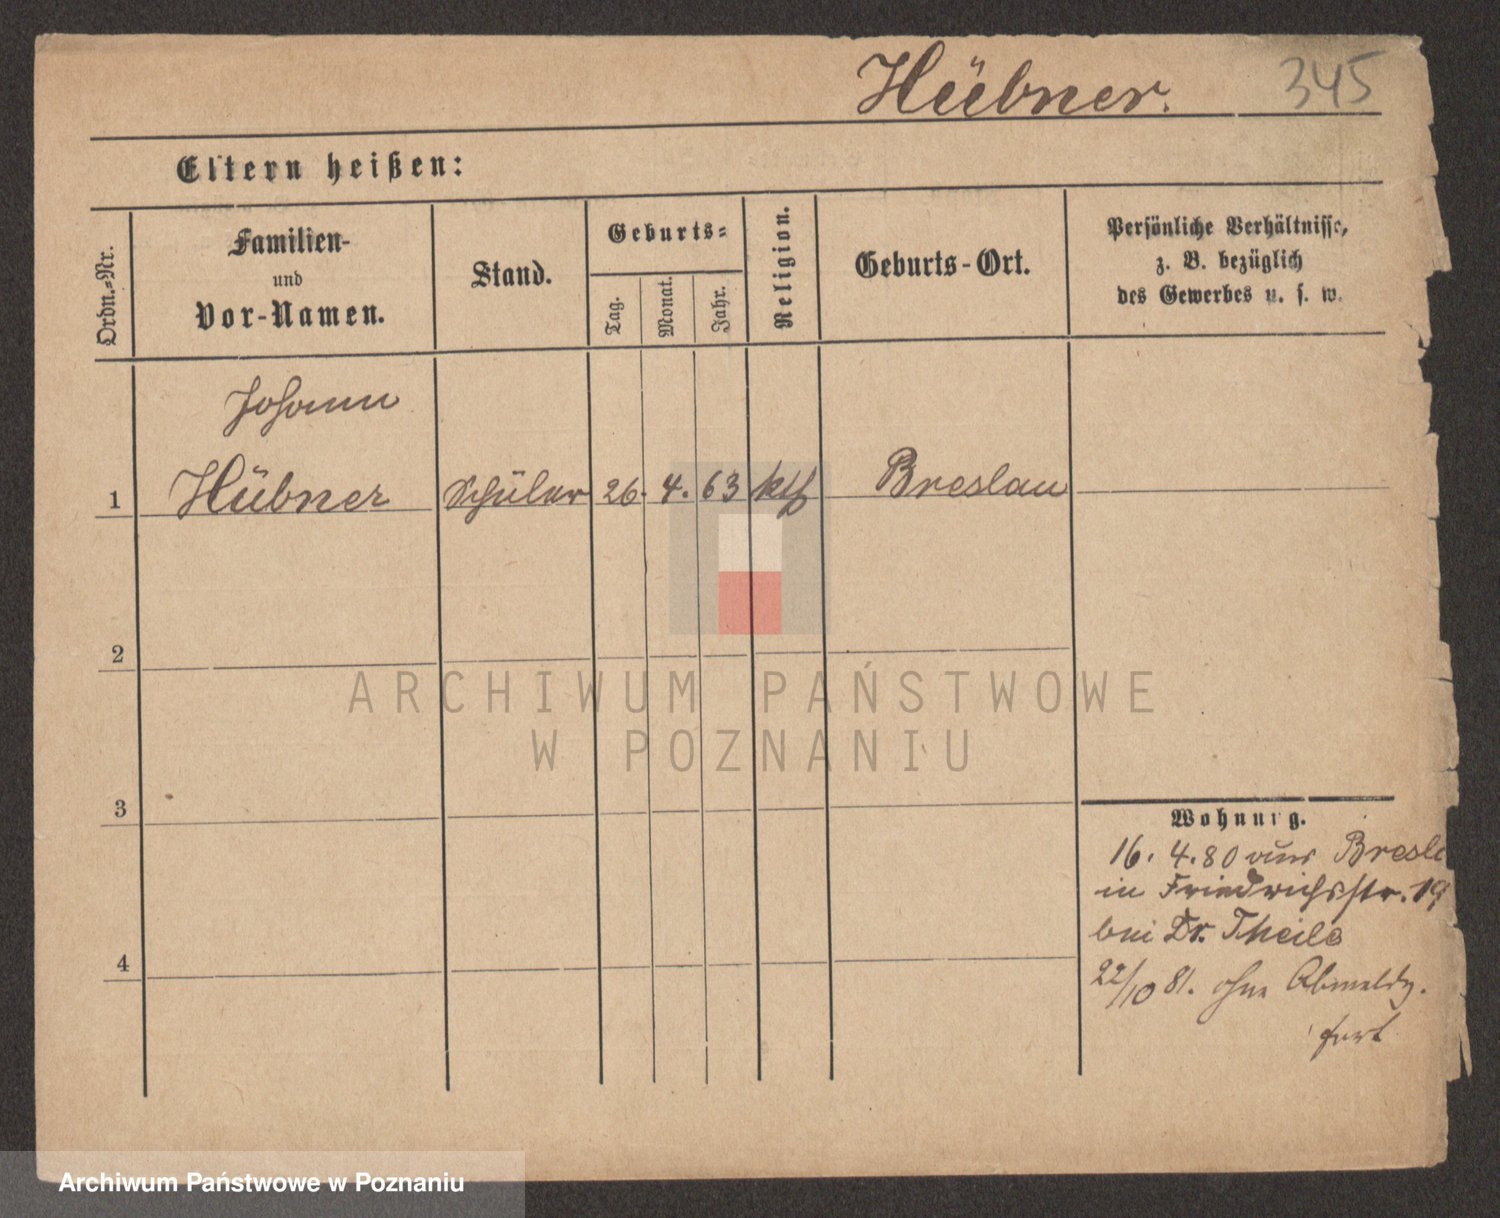 Hübner. 345
Eltern heißen:
Ordn.-Nr.
Familien-
und
Vor-Namen.
Stand.
Geburts-
Tag.
Monat.
Jahr.
Religion.
Geburts-Ort.
Persönliche Verhältnisse,
z. B. bezüglich
des Gewerbes u. s. w.
Johann
1 Hübner Schüler 26. 4. 63 kth Breslau
2
ARCHIWUM PAŃSTWOWE
W POZNANIU
3
Wohnung.
16. 4. 80 aus Bresla
in Friedrichsstr. 19
bei Dr. Theile
4
22/10 81. ohne Abmeldg.
fort
Archiwum Państwowe w Poznaniu